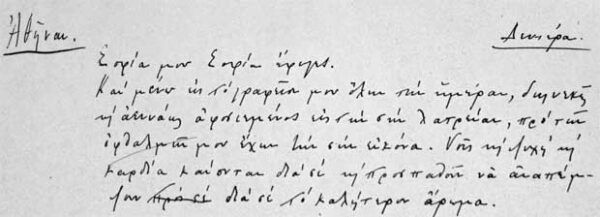 Ἀθῆναι. Δευτέρα.
Σοφία μου Σοφία ἔφυγες.
Καὶ μένω εἰς τὸ γραφεῖον μου ὅλην τὴν ἡμέραν, διηνεκῶς
ϗ ἀεννάως ἀφοσιωμένος εἰς τὴν σὴν λατρείαν, πρὸ τῶν
ὀφθαλμῶν μου ἔχων τὴν σὴν εἰκόνα. Νοῦς ϗ ψυχὴ ϗ
καρδία καίονται διὰ σὲ ϗ προσπαθοῦν νὰ ἀναπέμ-
ψουν πρὸς σὲ διὰ σὲ τὸ καλήτερον ἄρωμα.